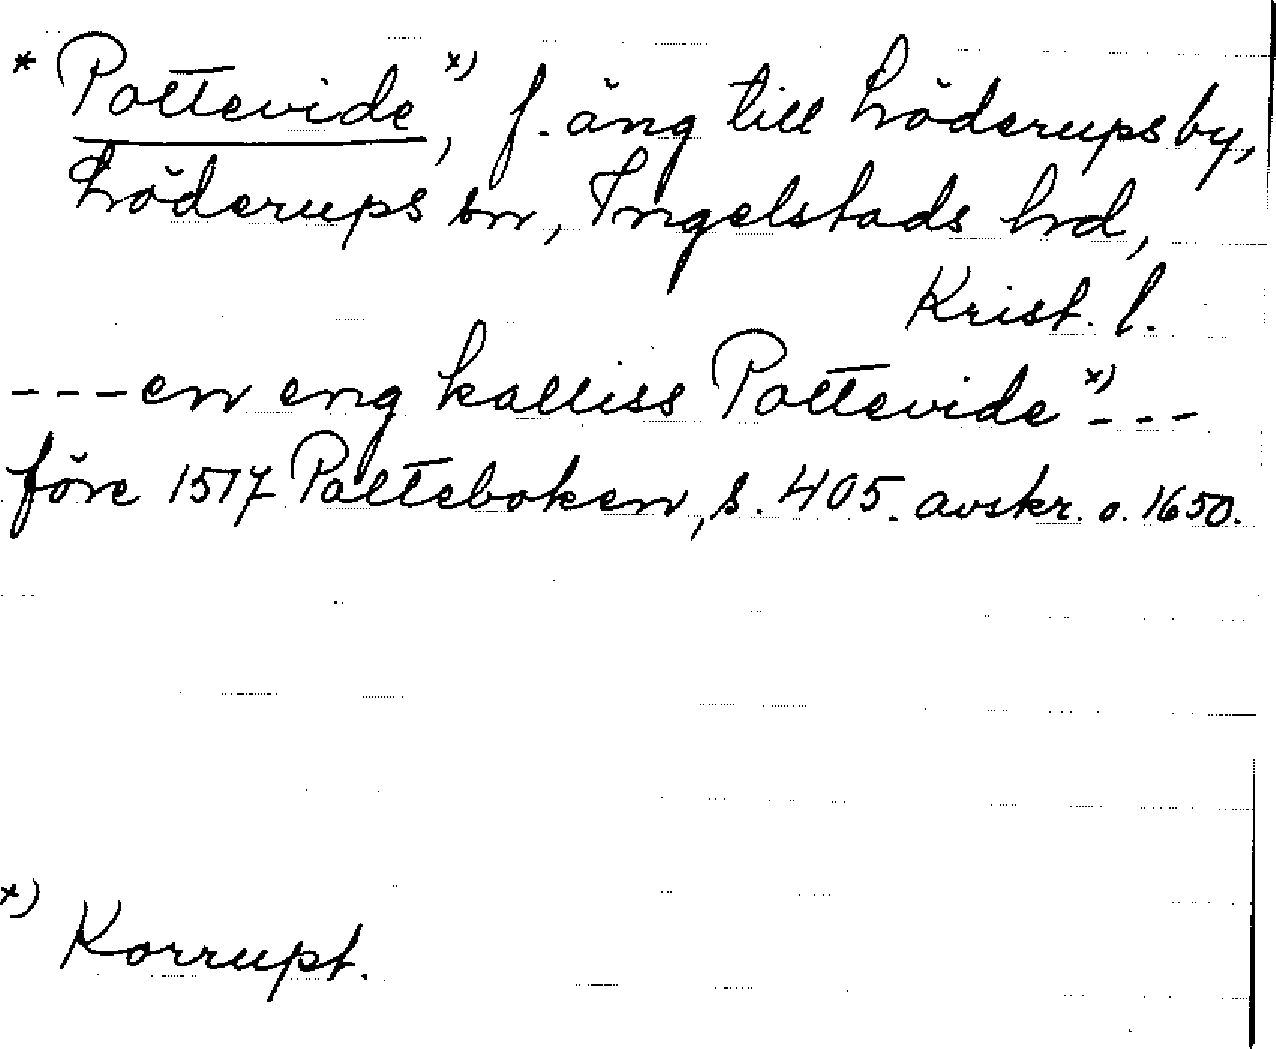 * Pottevide x), f. äng till Löderups by,
Löderups sn, Ingelstads hd,
Krist. l.
---en eng kalliss Pottevide x)---
före 1517 Palteboken, s. 405. avskr. o. 1650.
x) Korrupt.